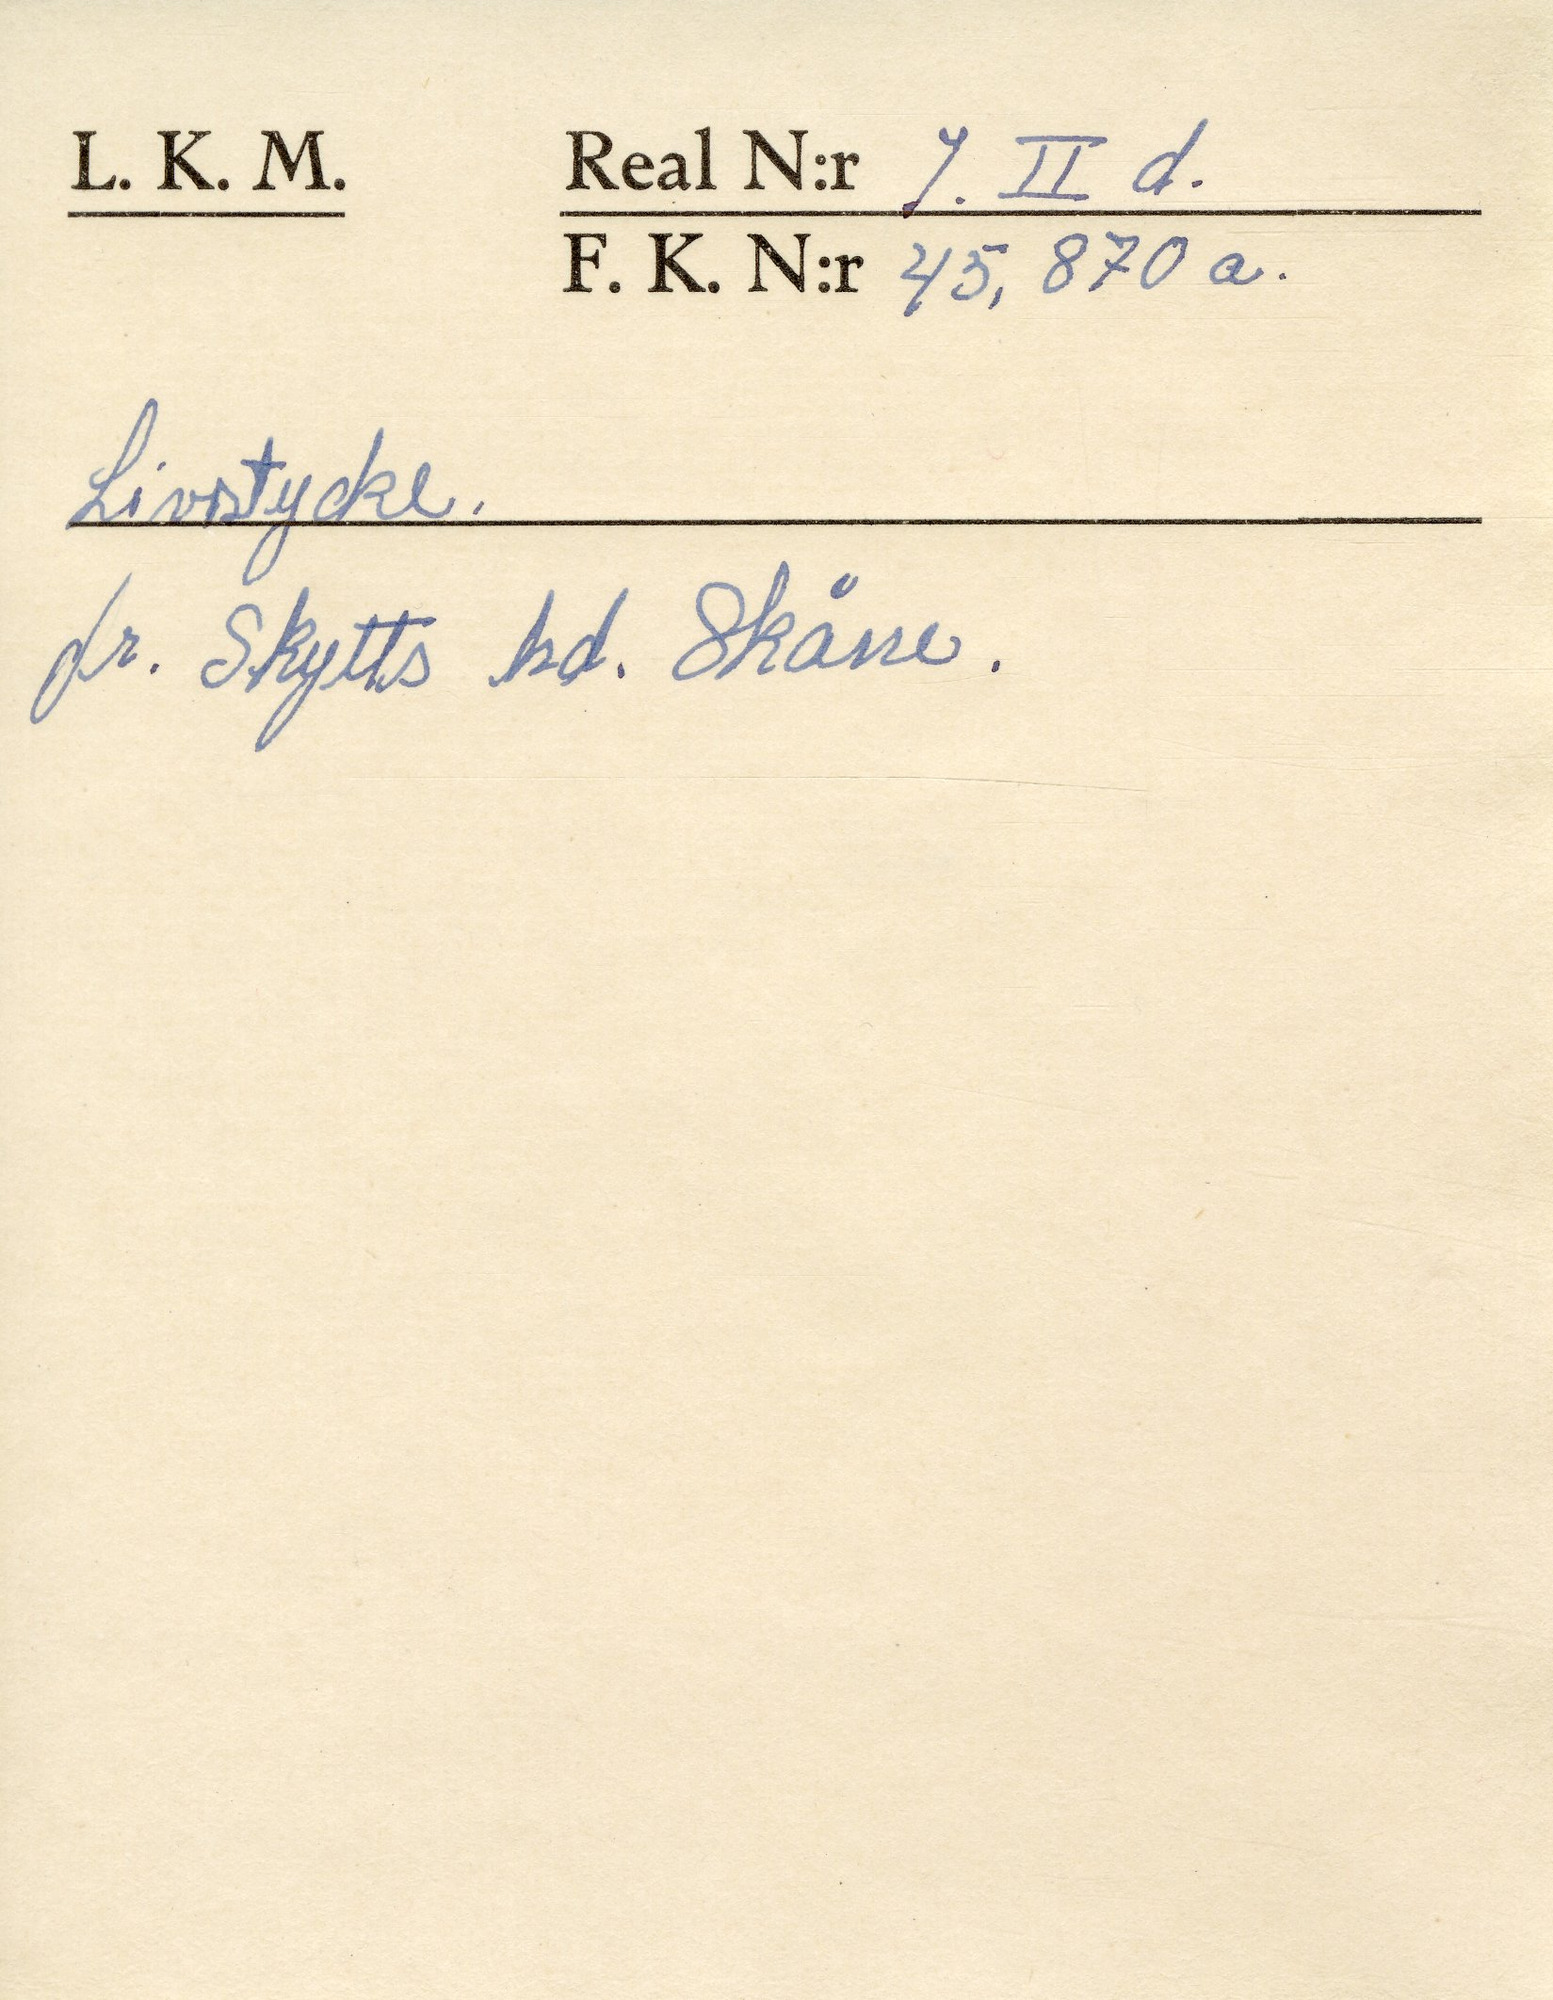 L. K. M.
Real N:r 7. II d.
F. K. N:r 45, 870 a.
Livstycke.
fr. Skytts hd. Skåne.